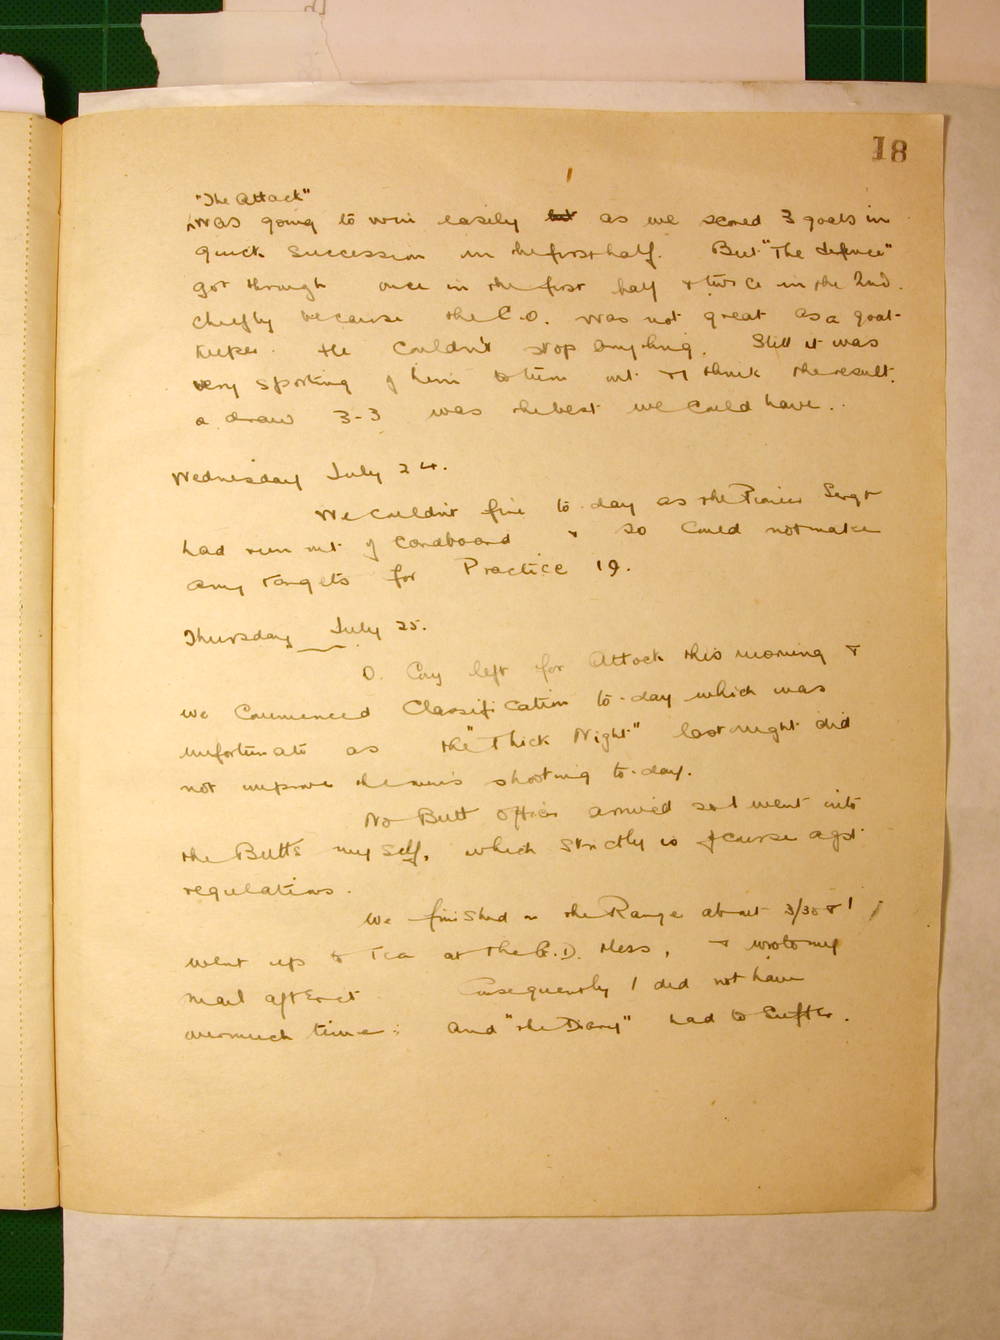 18
"The Attack"
was going to win easily but as we scored 3 goals in
quick succession in the first half. But "The defence"
got through once in the first half & twice in the 2nd.
chiefly because the C.O. was not great as a goal-
keeper. He couldn't stop anything. Still it was
very sporting of him to turn out & I think the result.
a draw 3-3 was the best we could have..
Wednesday July 24.
We couldn't fire to-day as the Pioneer Sergt
had run out of cardboard & so could not make
any targets for Practice 19.
Thursday July 25.
D. Coy left for Attock this morning &
we commenced Classification to-day which was
unfortunate as the "Thick Night" last night did
not improve the men's shooting to-day.
No Butt Officer arrived so I went into
the Butts myself, which strictly is of course agst
regulations.
We finished on the Range about 3/30 & I
went up to Tea at the Mess, & wrote my
mail after it. Consequently I did not have
overmuch time: and "the Diary" had to suffer.